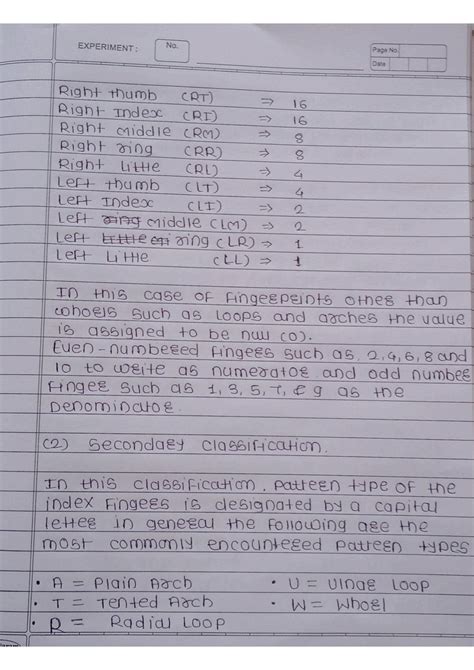 EXPERIMENT :
No.
Page No.
Date
Right thumb (RT) ⇒ 16
Right Index (RI) ⇒ 16
Right middle (RM) ⇒ 8
Right ring (RR) ⇒ 8
Right Little (RL) ⇒ 4
Left thumb (LT) ⇒ 4
Left Index (LI) ⇒ 2
Left ring middle (LM) ⇒ 2
Left Little ring (LR) ⇒ 1
Left Little (LL) ⇒ 1
In this case of fingerprints other than
whorls such as loops and arches the value
is assigned to be null (0).
Even-numbered fingers such as 2,4,6,8 and
10 to write as numerator and odd number
finger such as 1, 3, 5, 7, & 9 as the
Denominator.
(2) Secondary classification.
In this classification, pattern type of the
index fingers is designated by a capital
letter in general the following are the
most commonly encountered pattern types
• A = Plain Arch • U = Ulnar Loop
• T = Tented Arch • W = Whorl
• R = Radial Loop